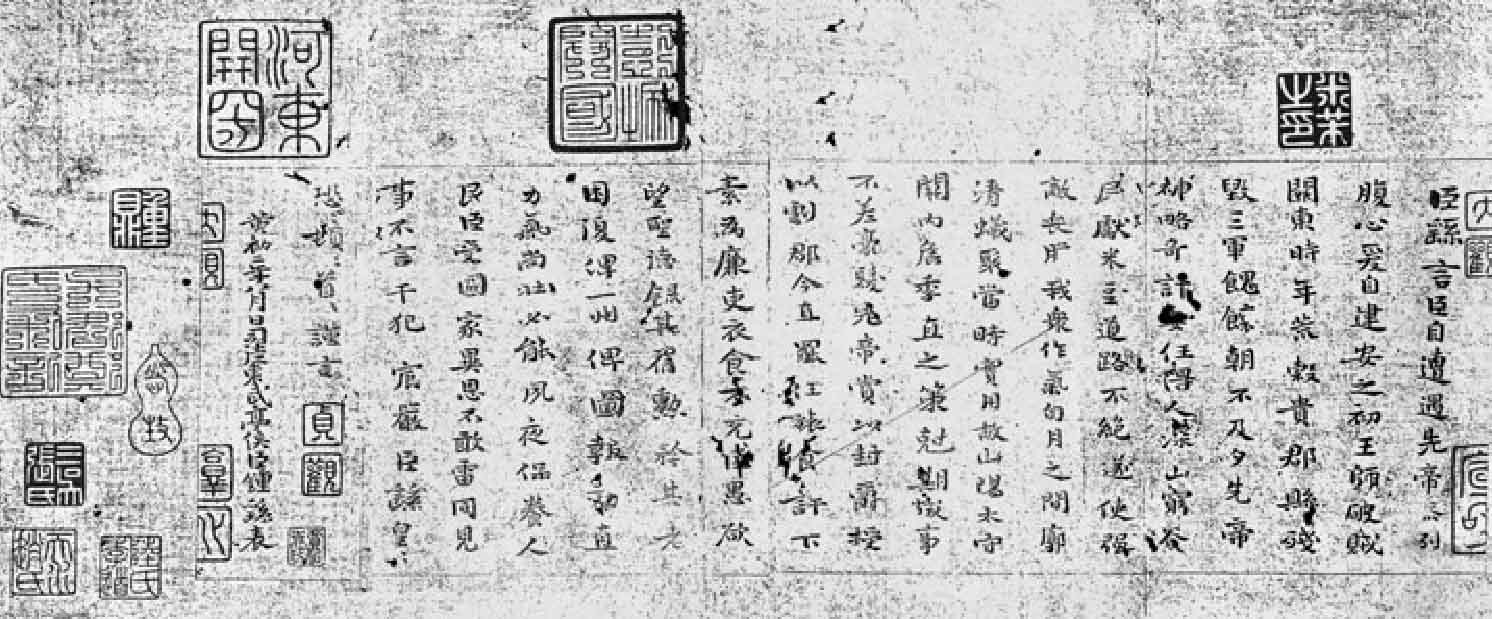 米芾之印
臣繇言臣自遭遇先帝忝列
腹心爰自建安之初王師破賊
關東時年荒穀貴郡縣殘
毀三軍餽饟朝不及夕先帝
神略奇計委任得人深山窮谷
民獻米豆道路不絕遂使強
敵喪膽我衆作氣旬月之間廓
清蟻聚當時實用故山陽太守
關內侯季直之策剋期成事
不差豪髮先帝賞以封爵授
以劇郡今直罷任旅食許下
素為廉吏衣食不充臣愚欲
望聖德錄其舊勳矜其老
困復俾一州俾圖報效直
力氣尚壯必能夙夜保養人
民臣受國家異恩不敢雷同見
事不言干犯宸嚴臣繇皇皇
恐頓首頓首謹言
貞觀
黃初二年八月日司徒東武亭侯臣鍾繇表
河東